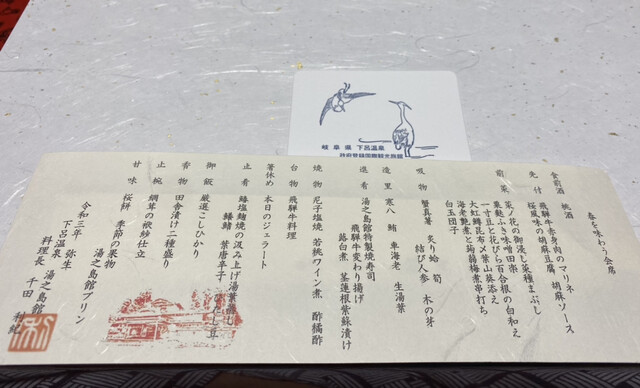 岐阜県 下呂温泉
政府登録国際観光旅館
春を味わう会席
食前酒 桃酒
飛騨牛赤身肉のマリネ 胡麻ソース
先付 桜風味の胡麻豆腐
菜ノ花の御浸し菜種まぶし
前菜 粟麩ふき味噌田楽
一寸豆と花びら百合根の白和え
大虹鱒昆布〆葉山葵添え
海老艶煮と蒟蒻梅煮串打ち
白玉団子
吸物 蟹真薯 炙り蛤 筍
結び人参 木の芽
造里 寒八 鮪 車海老 生湯葉
進肴 湯之島館特製焼寿司
飛騨牛変わり揚げ
蕗白煮 茎蓮根紫蘇漬け
焼物 尼子塩焼 若桃ワイン煮 酢橘酢
台物 飛騨牛料理
箸休め 本日のジェラート
止肴 鰆塩麹焼の汲み上げ湯葉
鰆鰭 葉唐辛子
御飯 厳選こしひかり
香物 田舎漬け二種盛り
止椀 鯛茸の袱紗仕立
甘味 桜餅 季節の果物
湯之島館プリン
令和三年 弥生
下呂温泉 湯之島館
料理長 千田 利紀